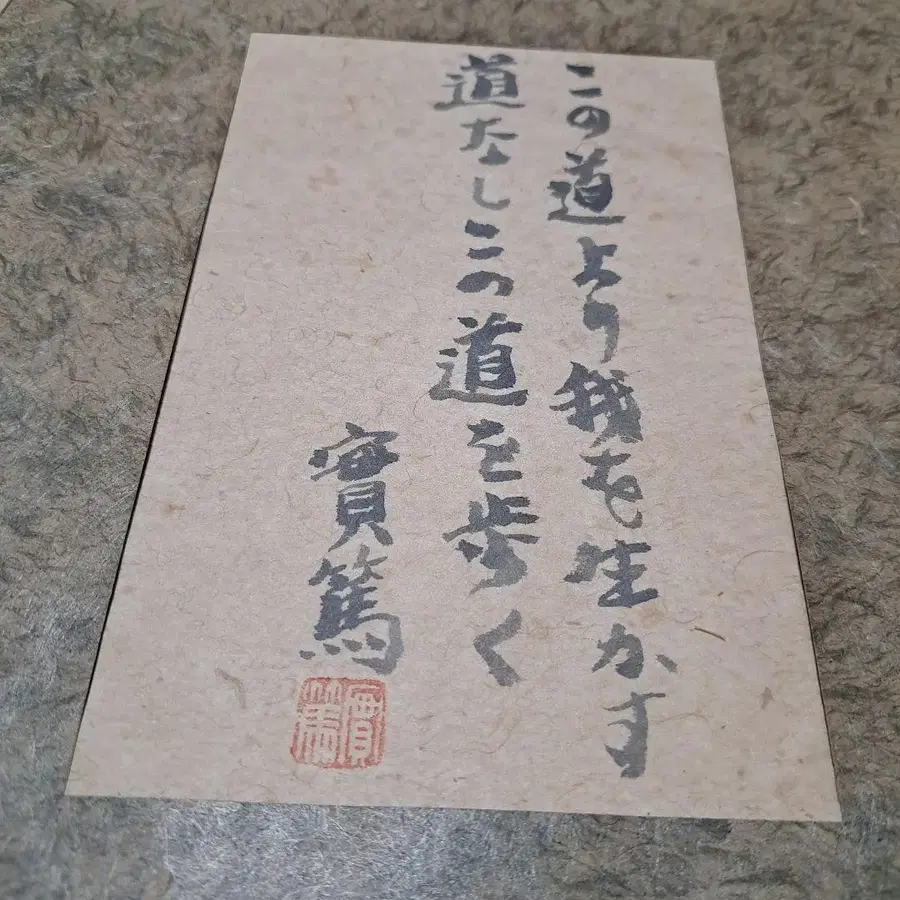 この道より我を生かす
道なしこの道を歩く
實篤
實篤